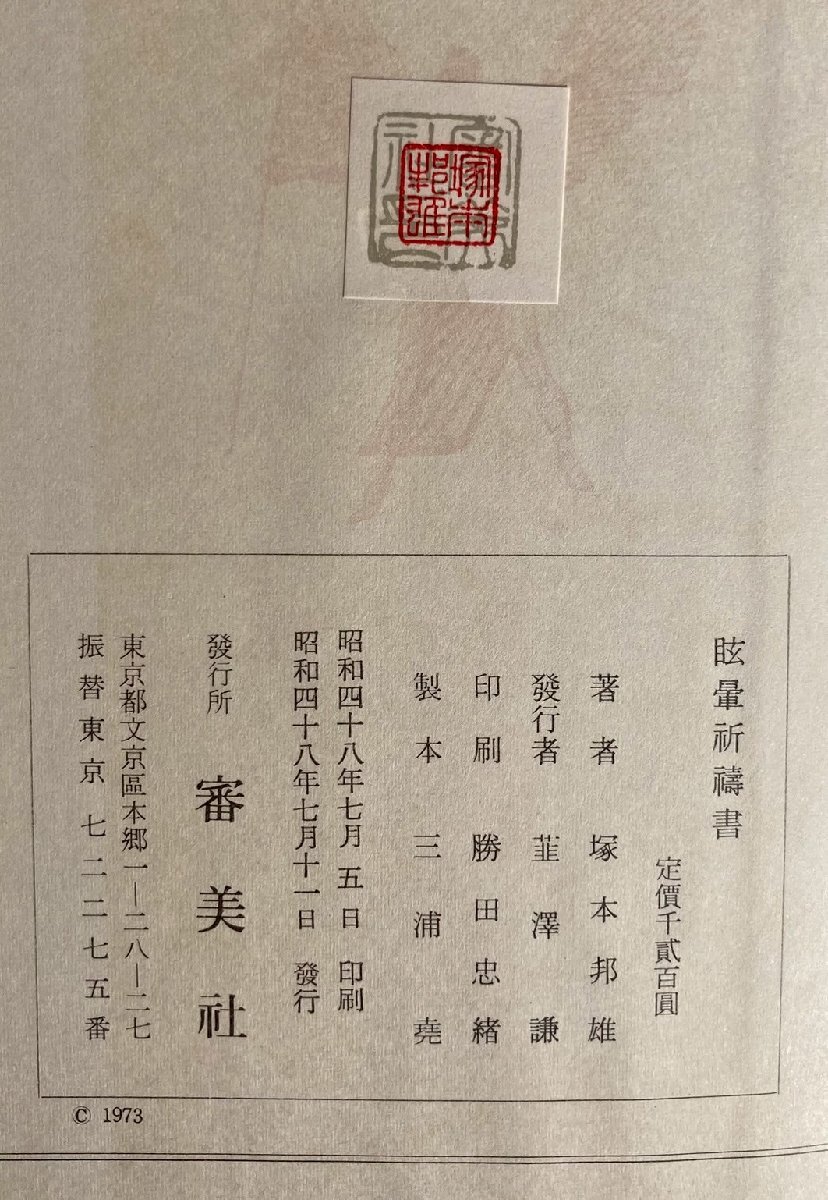 審美社印
塚本邦雄
眩暈祈禱書
定價千貳百圓
著者 塚本邦雄
發行者 韮澤謙
印刷 勝田忠緒
製本 三浦堯
昭和四十八年七月五日 印刷
昭和四十八年七月十一日 發行
發行所 審美社
東京都文京區本郷一―二八―二七
振替東京 七二二七五番
© 1973